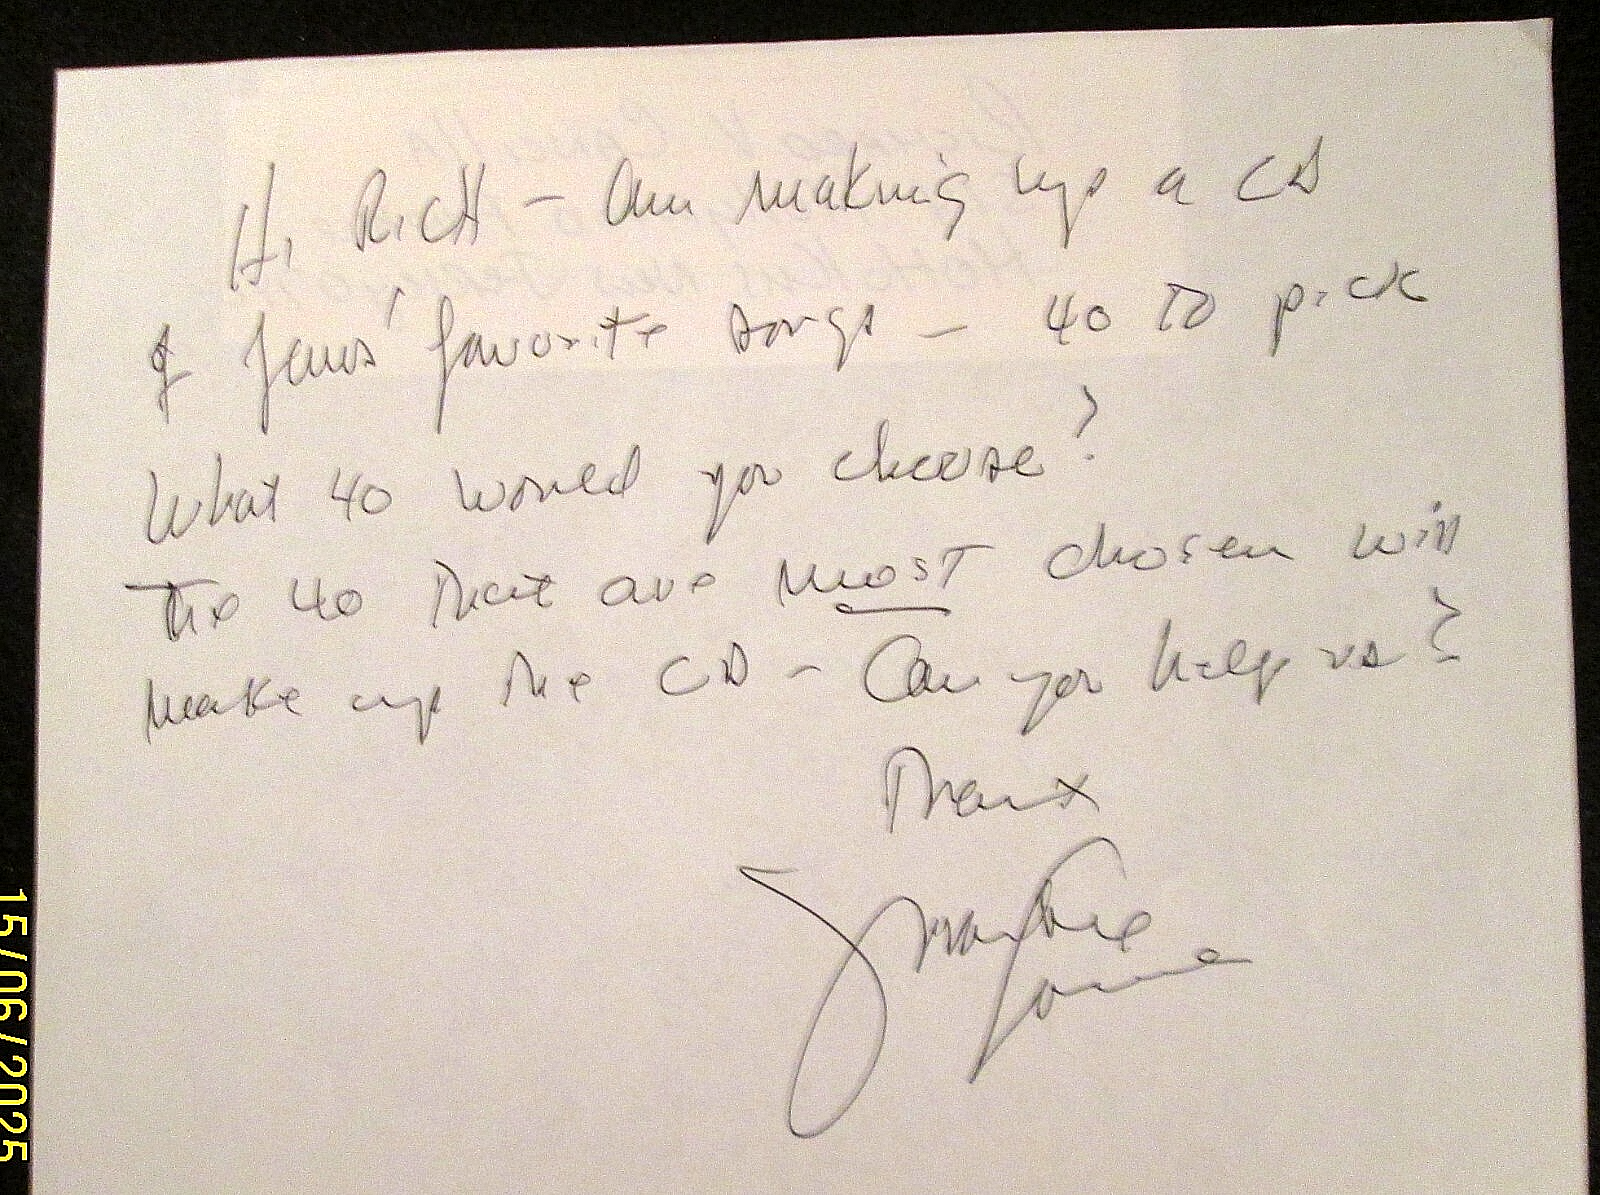 Hi RicH - Am making up a CD
of fans' favorite songs - 40 TO pick
What 40 would you choose?
The 40 that are most chosen will
make up the CD - Can you help us?
Thanx
15/06/2025